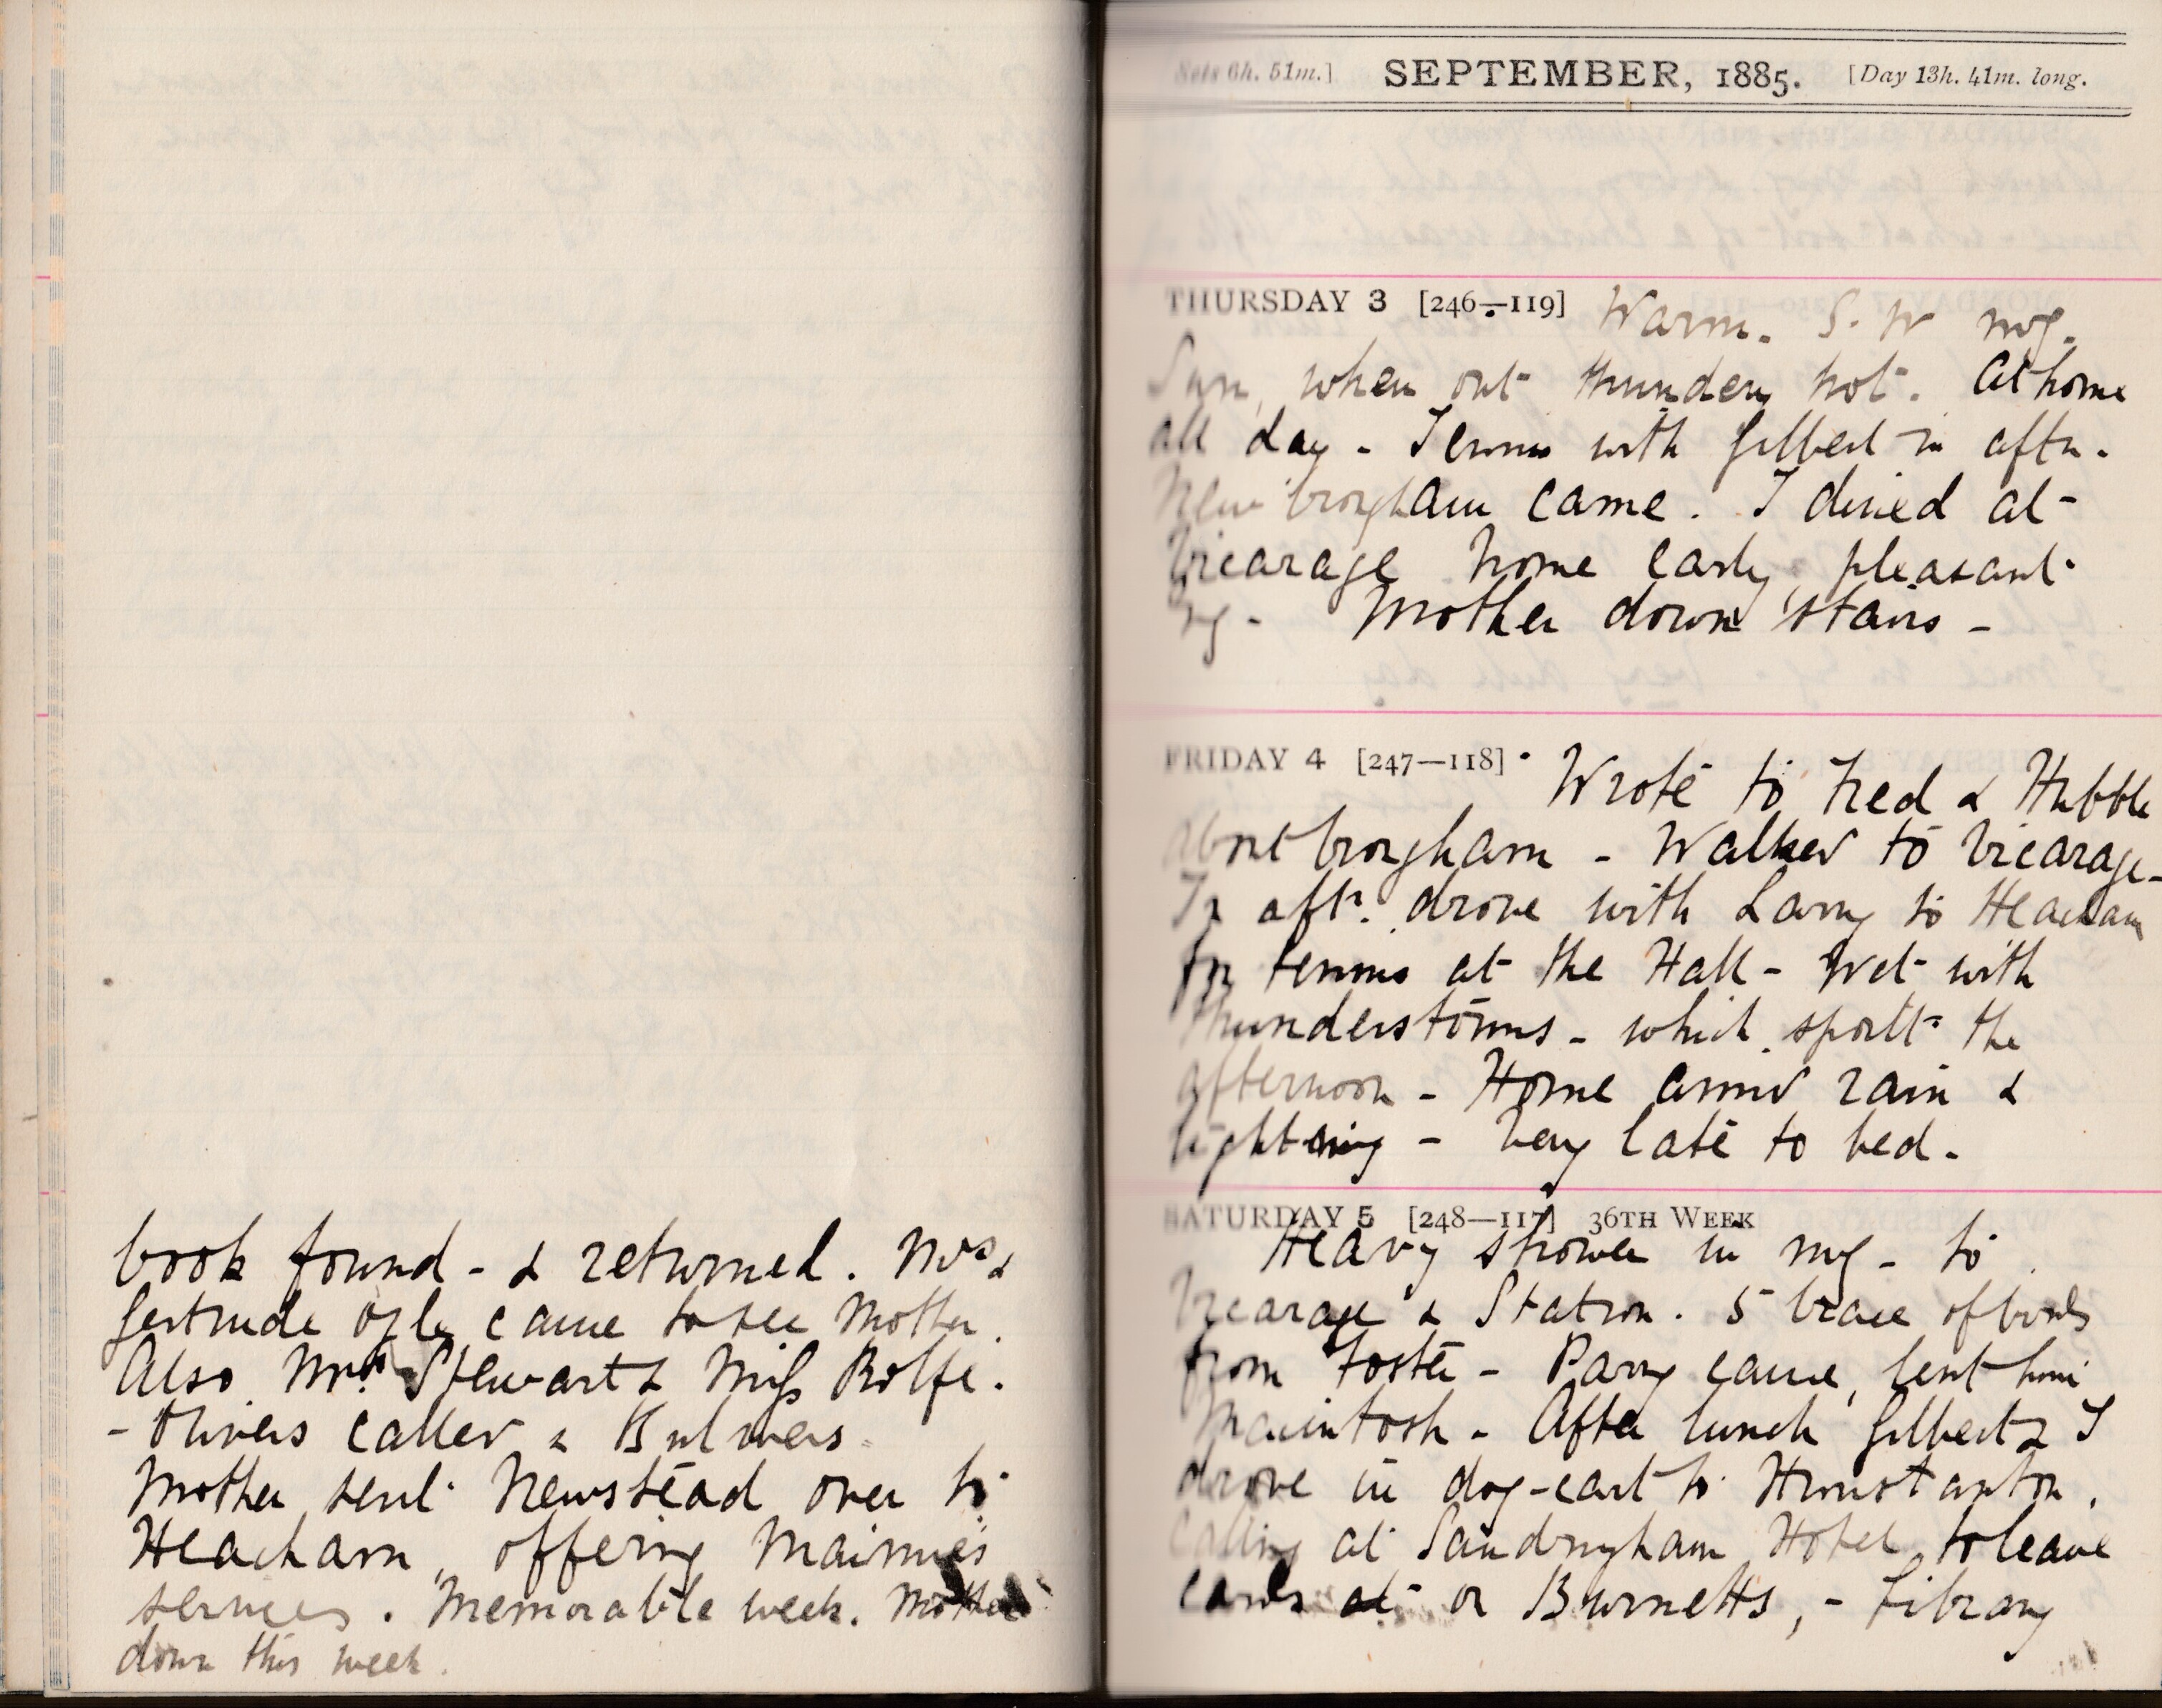 book found - & returned. Mrs &
Gertrude Ogle came to see Mother.
Also Mrs. Stewart & Miss Rolfe.
- Olivers called & Bulwers.
Mother sent Newstead over to
Heacham, offering Mainnie's
services. Memorable week. Mother
down this week.
Sets 6h. 51m.] SEPTEMBER, 1885. [Day 13h. 41m. long.
THURSDAY 3 [246—119] Warm. S. W mg.
Sun, when out thundery hot. At home
all day - Tennis with Gilbert in aftn.
New brougham came. I dined at
Vicarage home early, pleasant
Mother down stairs -
FRIDAY 4 [247—118] Wrote to Fred & Hubble
about brougham - Walked to Vicarage -
In aftn. drove with Larry to Heacham
for tennis at the Hall - Wet with
thunderstorms - which spoilt the
afternoon - Home amid rain &
lightning - Very late to bed -
SATURDAY 5 [248—117] 36TH WEEK
Heavy shower in mg - to
Vicarage & Station. 5 brace of birds
from Foster - Parry came, lent him
Macintosh - After lunch Gilbert & I
drove in dog-cart to Hunstanton,
calling at Sandringham Hotel to leave
cards at on Burnetts, - Library